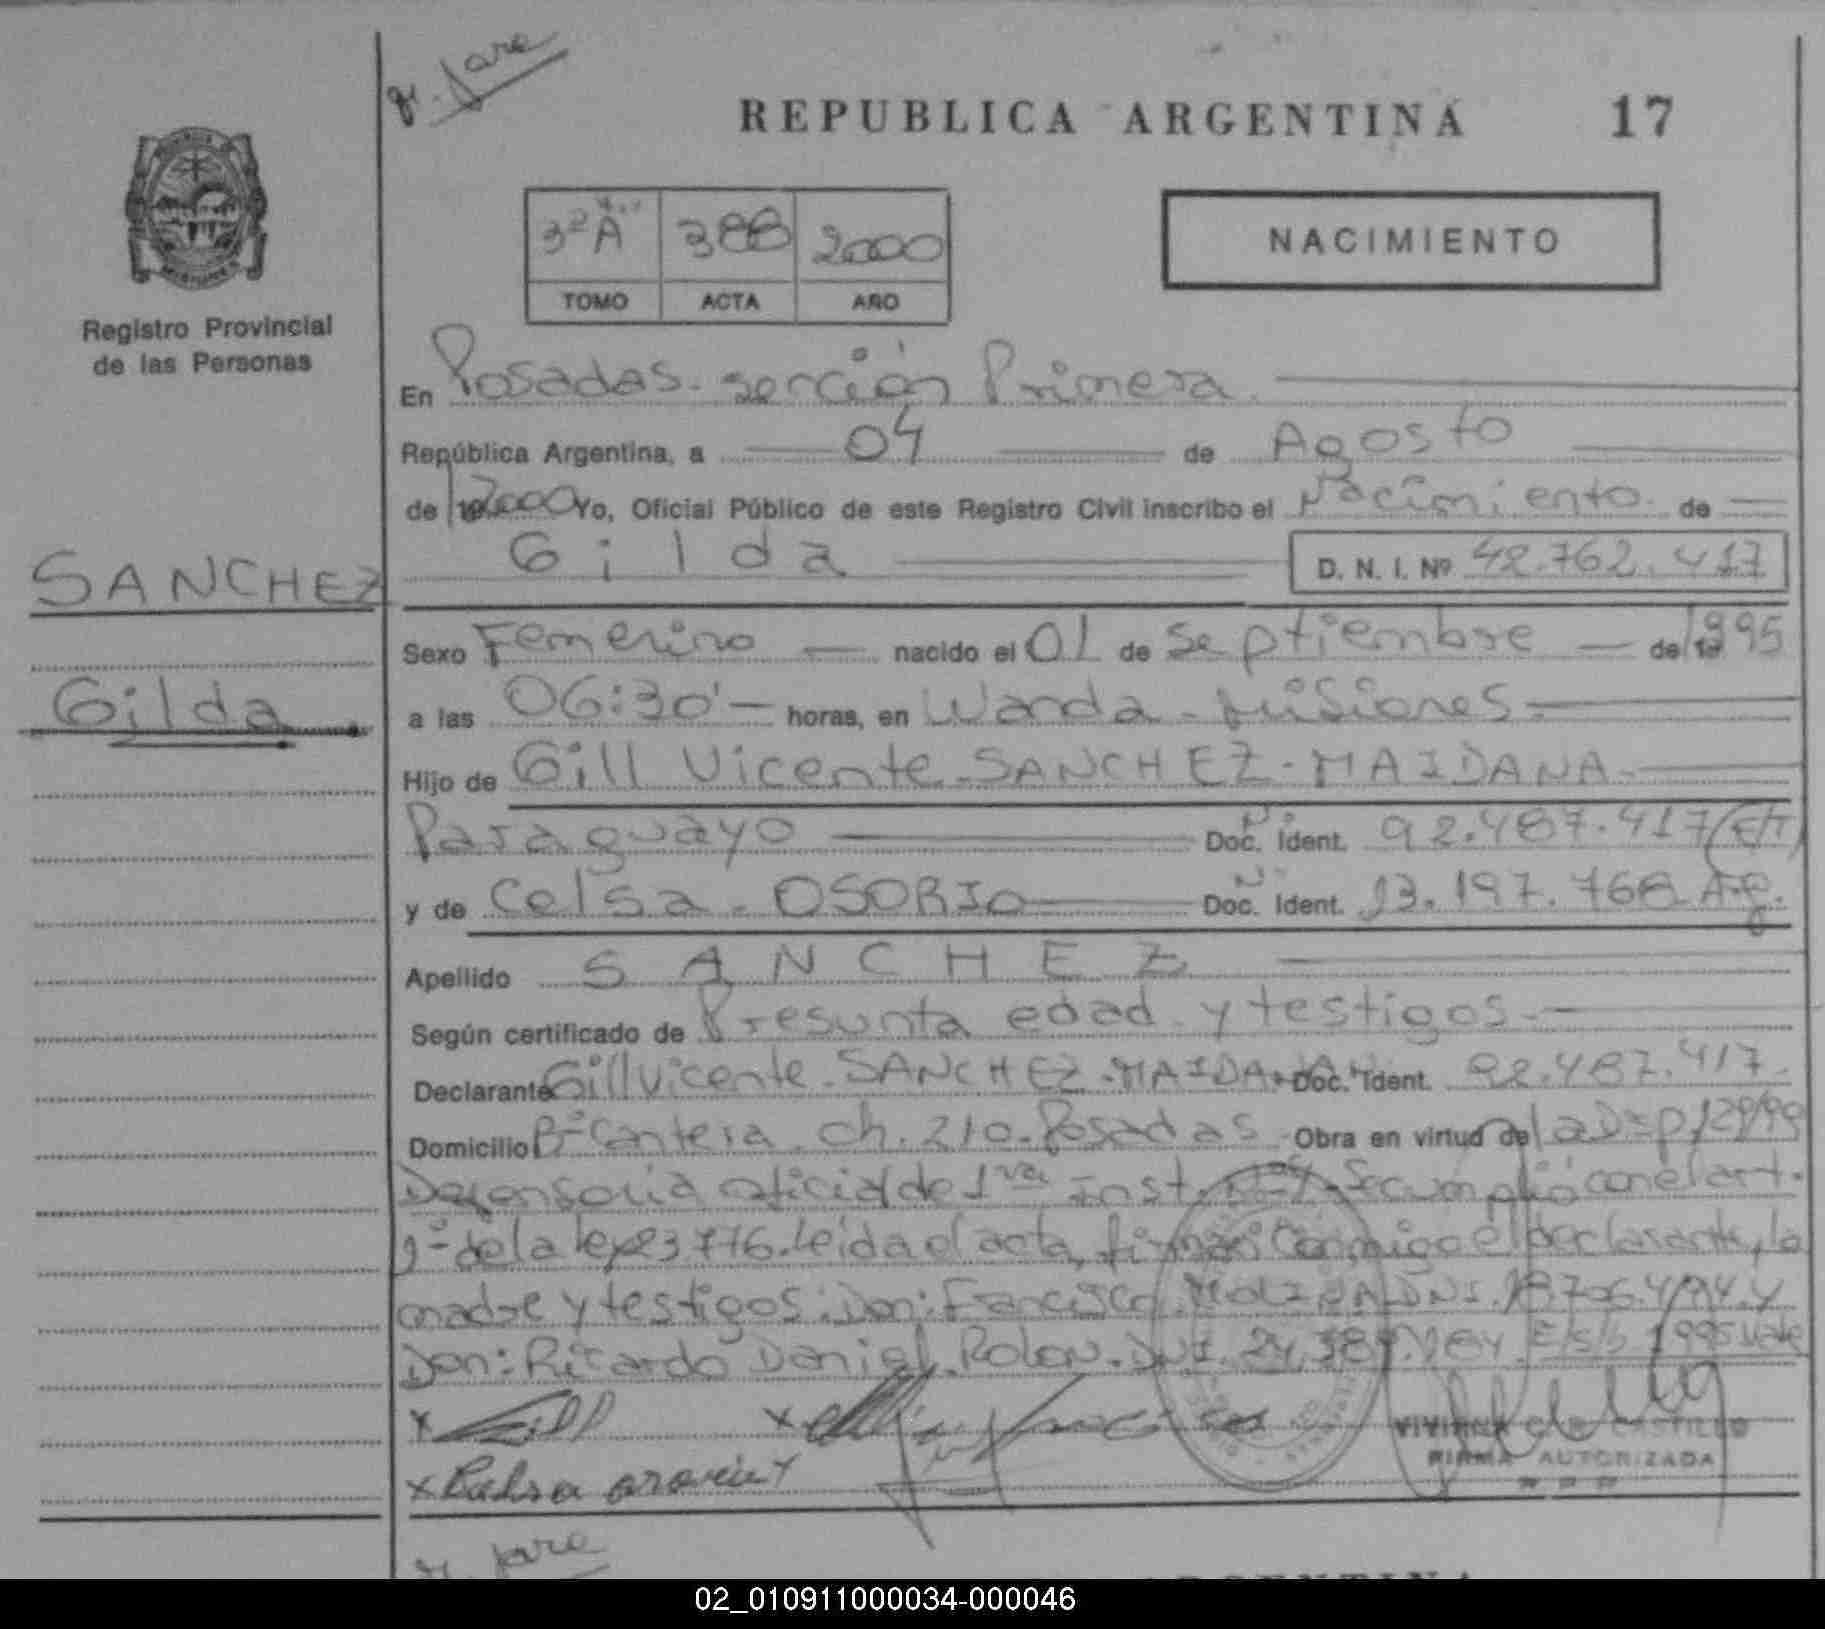 g. Jara
REPUBLICA ARGENTINA 17
3º A 388 2000
TOMO ACTA AÑO
NACIMIENTO
Registro Provincial
de las Personas
En Posadas. sección Primera.
República Argentina, a 04 de Agosto
de 2000 Yo, Oficial Público de este Registro Civil inscribo el Nacimiento de
Gilda D. N. I. Nº 42.762.417
SANCHEZ
Gilda.
Sexo Femenino nacido el 01 de Septiembre de 1995
a las 06:30' horas, en Wanda - Misiones.
Hijo de Gill Vicente - SANCHEZ - MAIDANA.
Paraguayo Doc. Ident. 92.487.417 (E/T)
y de Celsa - OSORIO Doc. Ident. 13.197.768 Arg.
Apellido SANCHEZ
Según certificado de Presunta edad y testigos.
Declarante Gill Vicente - SANCHEZ - MAIDANA Doc. Ident. 92.487.417.
Domicilio Bº Cantera. ch. 210. Posadas Obra en virtud de la Disp 129/99
Defensoría oficial de 1ra Inst. Nº Se cumplió con el art.
de la ley 23776. Leída el acta, firman conmigo el declarante, la
madre y testigos: Don: Francisco DNI. y
Don: Ricardo Daniel Rolon. DNI. E/s/b 1995 Vale
x Gill x
x
VIVIANA CASTILLO
FIRMA AUTORIZADA
g. Jara
ARGENTINA
02_010911000034-000046